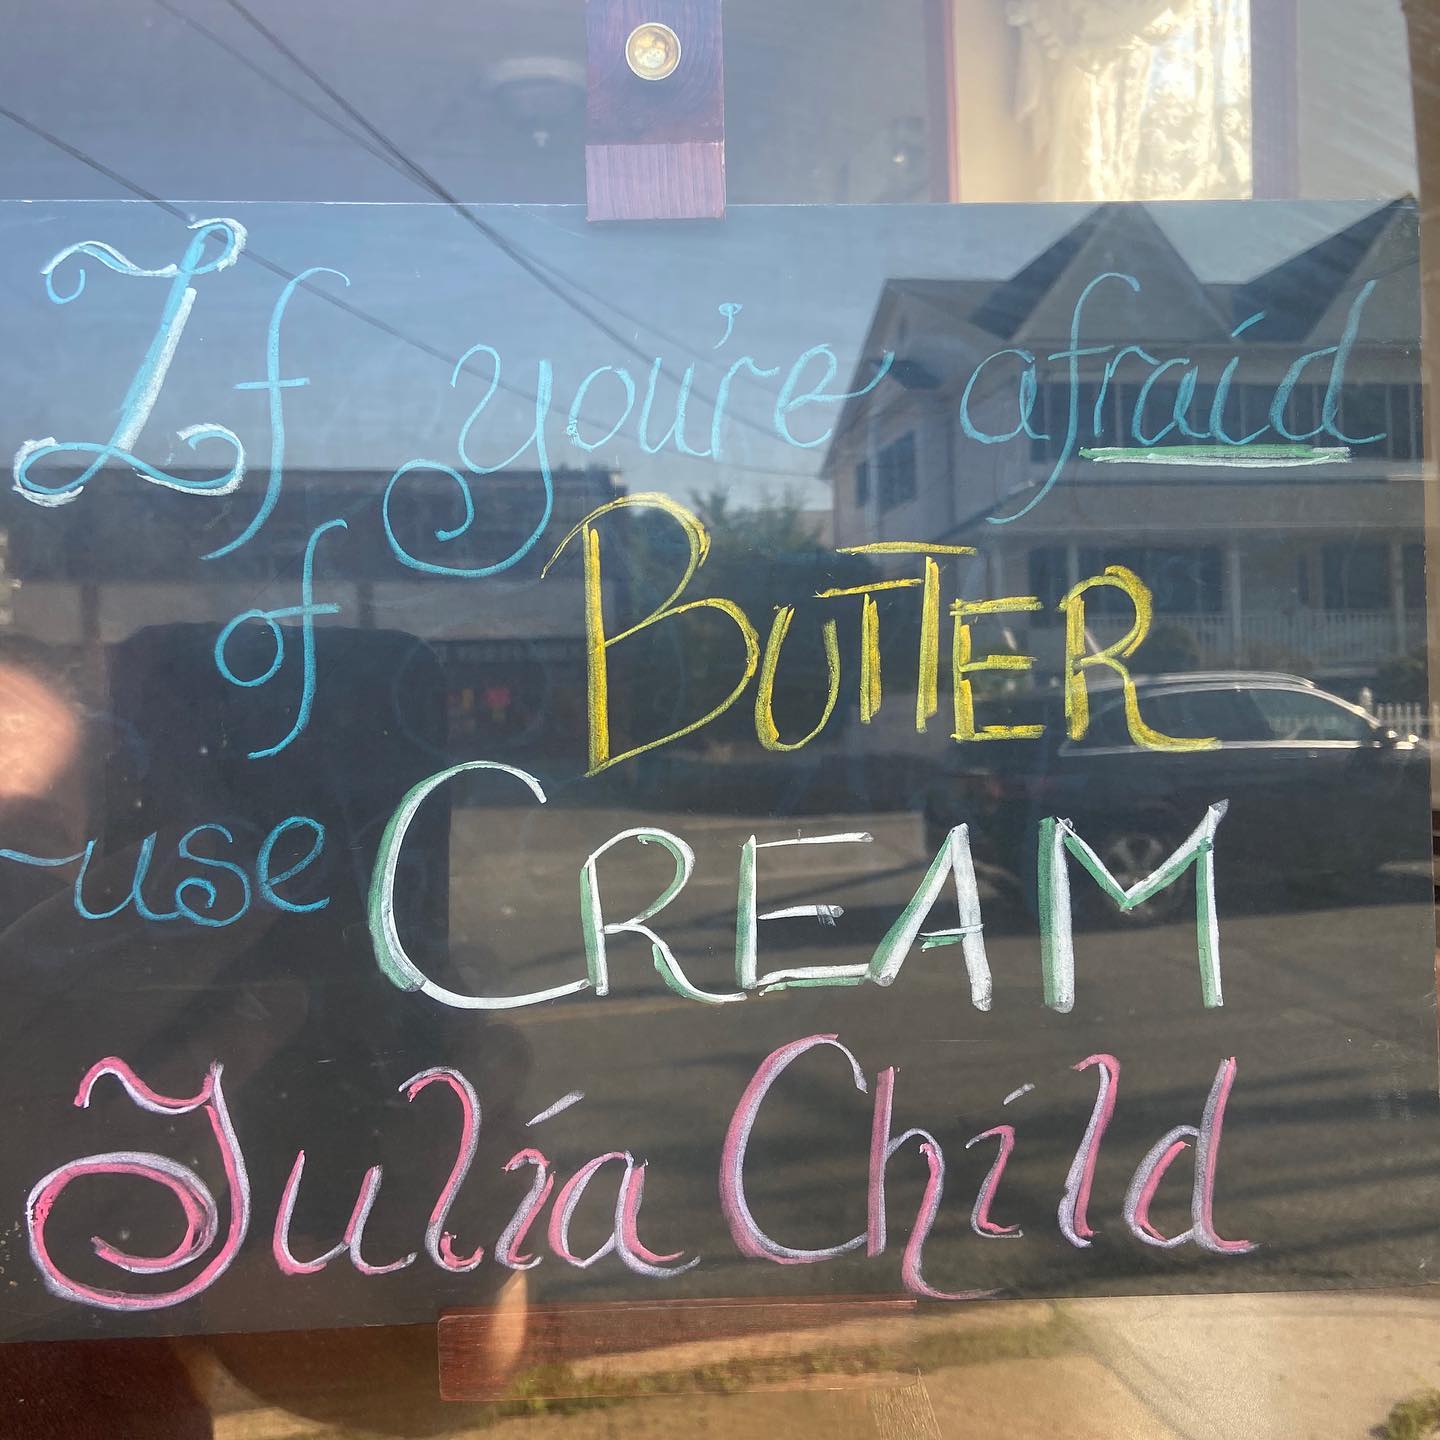 If you're afraid
of BUTTER
use CREAM
Julia Child